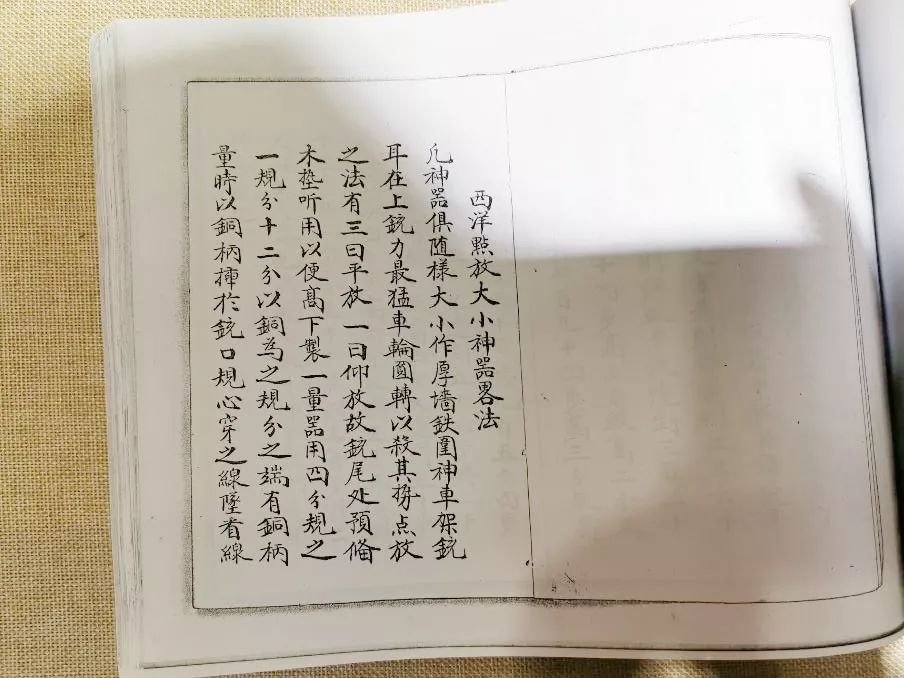 西洋點放大小神器畧法
凡神器俱随樣大小作厚墙鉄圍神車架銃
耳在上銃力最猛車輪圎轉以殺其势点放
之法有三曰平放一曰仰放故銃尾处預備
木墊听用以便髙下製一量器用四分規之
一規分十二分以銅為之規分之端有銅柄
量時以銅柄揷於銃口規心穿之線墜看線